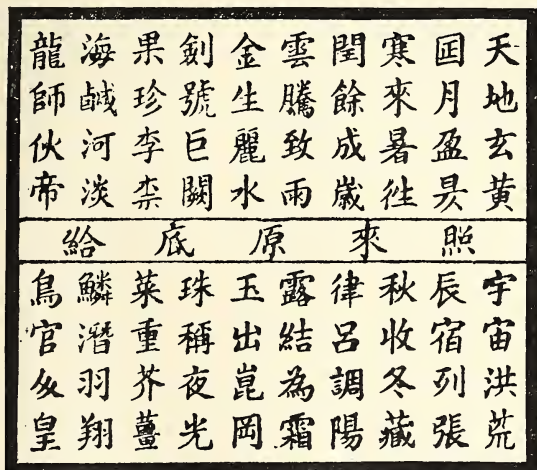 天地玄黃
囸月盈昃
寒來暑徃
閏餘成歲
雲騰致雨
金生麗水
釗號巨闕
果珍李柰
海鹹河淡
龍師伙帝
照來原底給
宇宙洪荒
辰宿列張
秋收冬藏
律呂調陽
露結為霜
玉出崑岡
珠稱夜光
菜重芥薑
鱗潛羽翔
鳥官皇